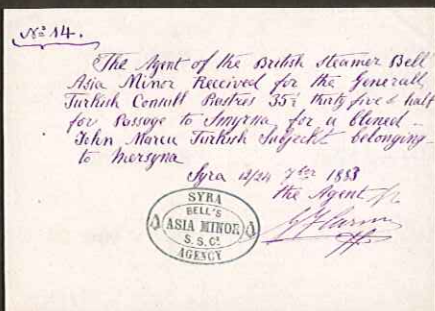 No 14.
The Agent of the British steamer Bell
Asia Minor Received for the Generall
Turkish Consult Piastres 35½ thirty five & half
for Passage to Smyrna for a blined -
John Turkish Subjeckt belonging
to Mersyna
Syra 12/24 7ber 1883
the Agent
SYRA
BELL'S
ASIA MINOR
S. S. Co.
AGENCY